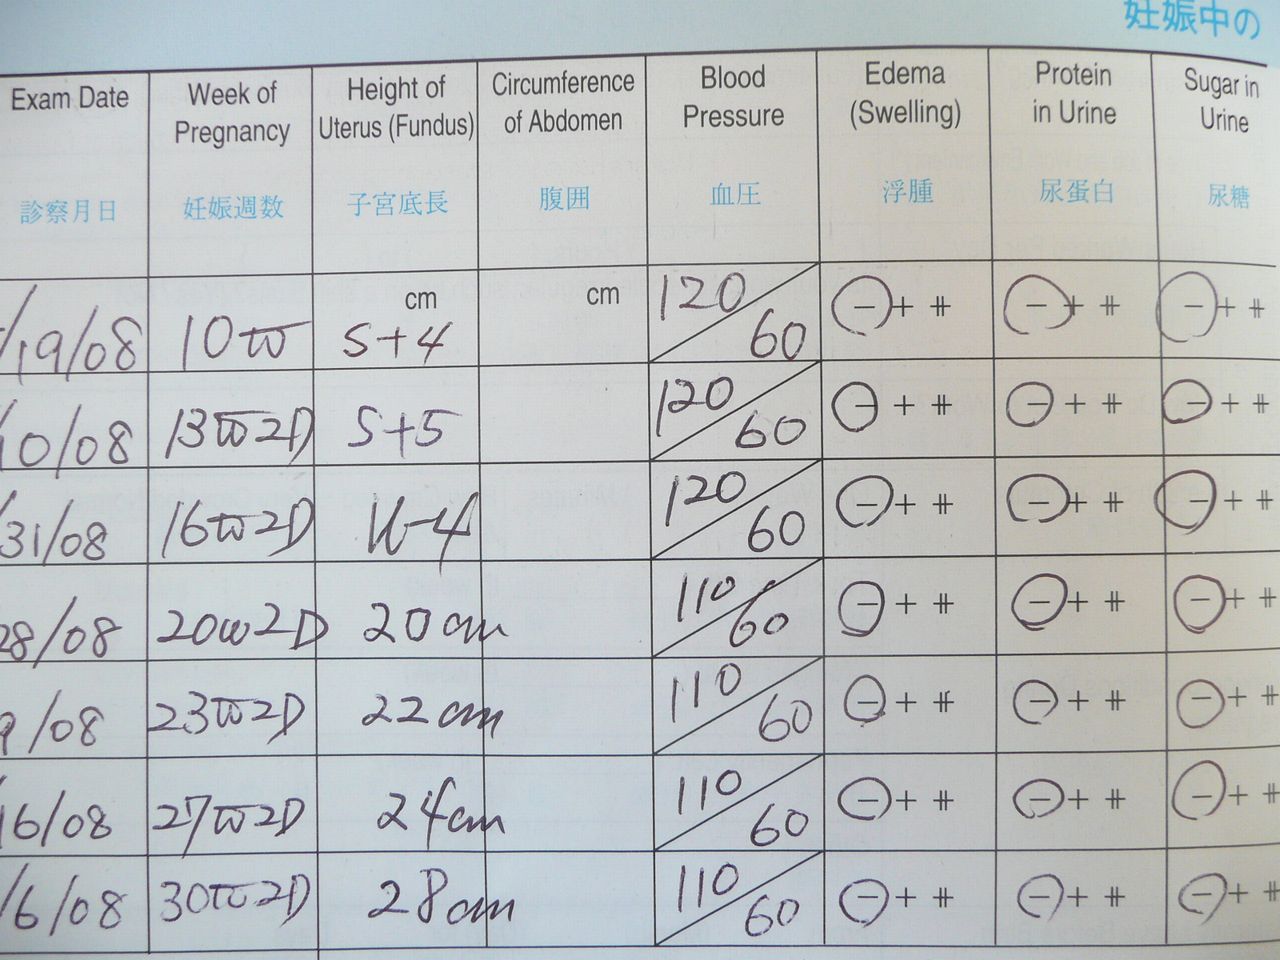 妊娠中の
Exam Date Week of Pregnancy Height of Uterus (Fundus) Circumference of Abdomen Blood Pressure Edema (Swelling) Protein in Urine Sugar in Urine
診察月日 妊娠週数 子宮底長 腹囲 血圧 浮腫 尿蛋白 尿糖
/19/08 10w cm S+4 cm 120/60 - + ⧺ - + ⧺ - + ⧺
/10/08 13w2D S+5 120/60 - + ⧺ - + ⧺ - + ⧺
31/08 16w2D U-4 120/60 - + ⧺ - + ⧺ - + ⧺
28/08 20w2D 20cm 110/60 - + ⧺ - + ⧺ - + ⧺
9/08 23w2D 22cm 110/60 - + ⧺ - + ⧺ - + ⧺
16/08 27w2D 24cm 110/60 - + ⧺ - + ⧺ - + ⧺
/6/08 30w2D 28cm 110/60 - + ⧺ - + ⧺ - + ⧺